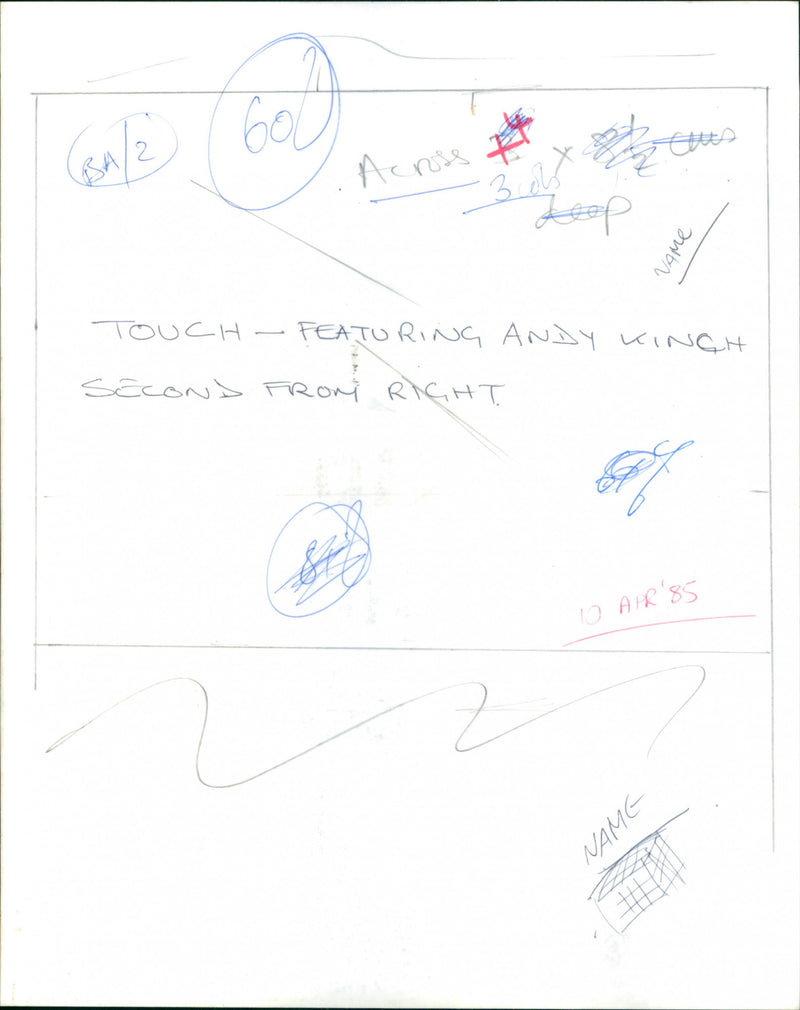 BA/2
60
Across
x
cms
3 cols
deep
NAME
TOUCH — FEATURING ANDY KINCH
SECOND FROM RIGHT
10 APR '85
NAME